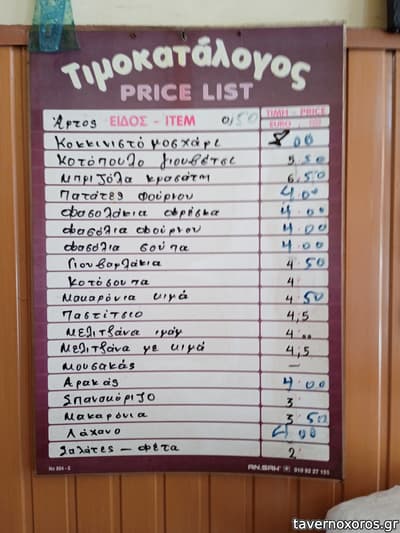 Τιμοκατάλογος
PRICE LIST
Άρτος ΕΙΔΟΣ - ITEM 0,50 ΤΙΜΗ - PRICE
EURO
Κοκκινιστό μοσχάρι 8 00
Κοτόπουλο γιουβέτσι 5,50
Μπριζόλα κρασάτη 6,50
Πατάτες φούρνου 4.00
Φασολάκια φρέσκα 4.00
Φασόλια φούρνου 4.00
Φασόλια σούπα 4.00
Γιουβαρλάκια 4 50
Κοτόσουπα 4
Μακαρόνια κιμά 4 50
Παστίτσιο 4,5
Μελιτζάνα ιμάμ 4 ..
Μελιτζάνα με κιμά 4,5
Μουσακάς —
Αρακάς 4.00
Σπανακόριζο 3
Μακαρόνια 3 50
Λάχανο 4 00
Σαλάτες - φέτα 2
Νο 204 - Ε ΑΝ.ΣΑΚ 010 92 27 155
tavernoxoros.gr